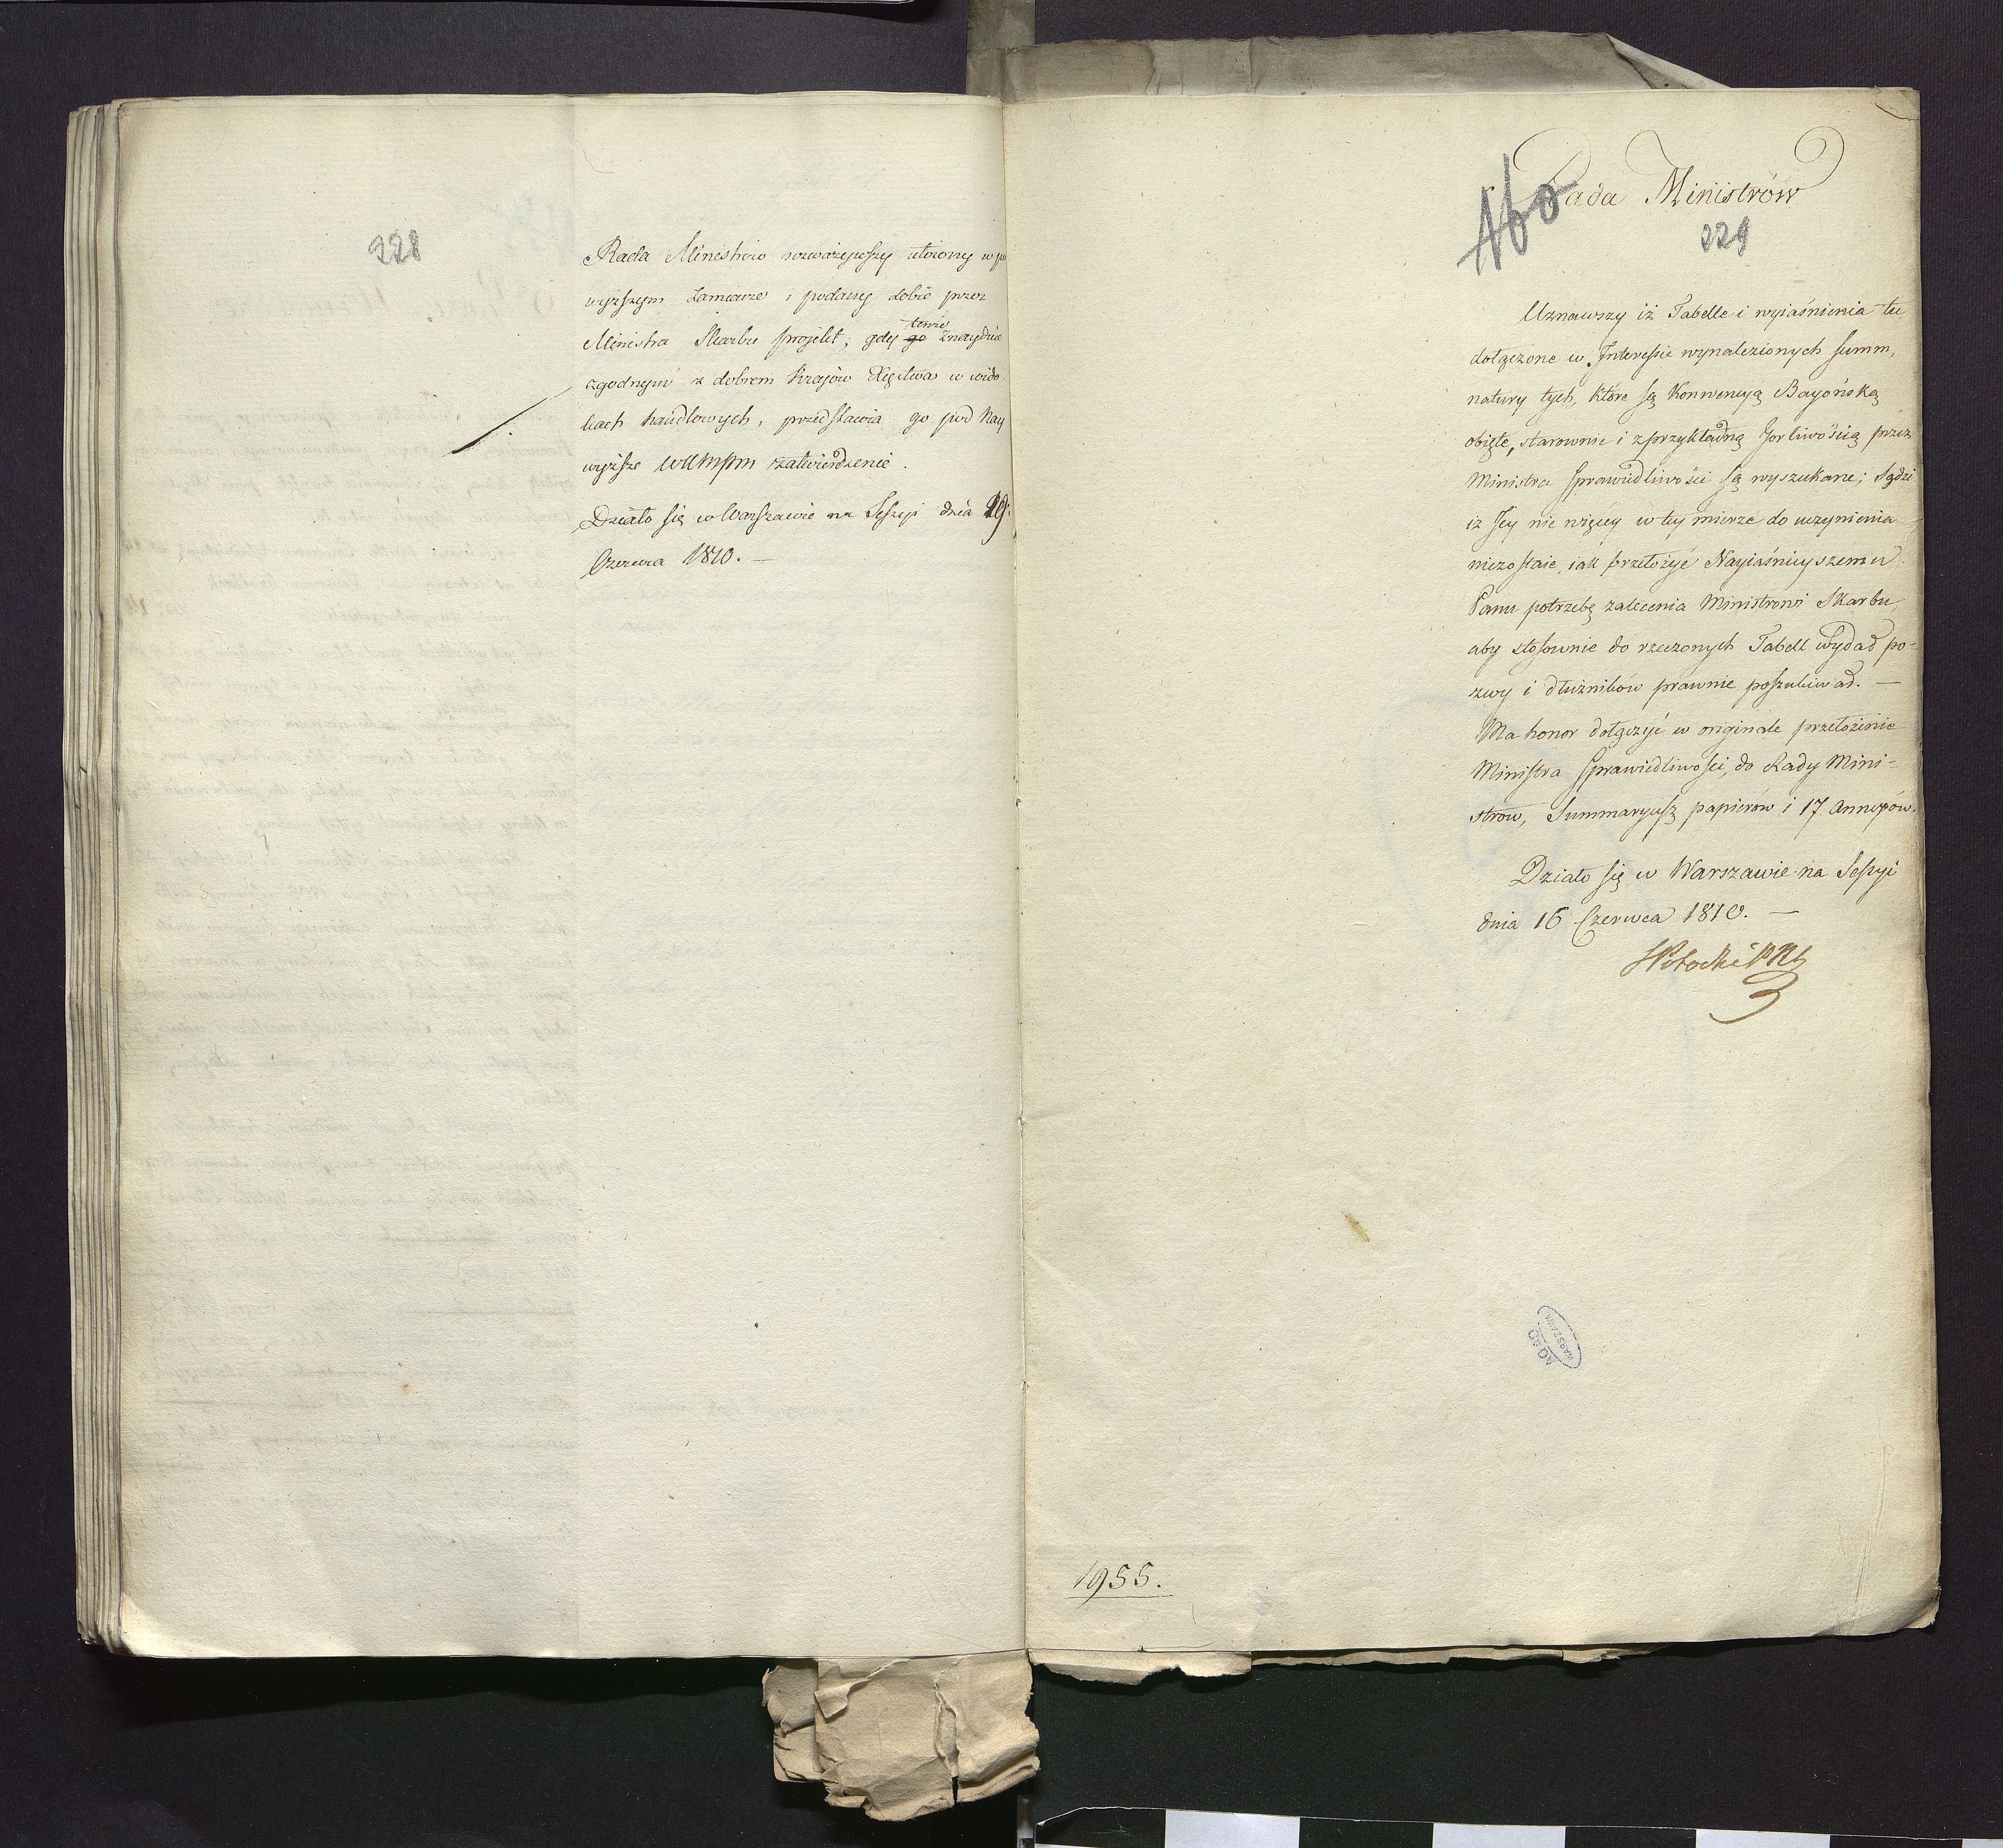 228
Rada Ministrow rozważywszy ułożony w po
wyższym zamiarze i podany sobie przez
Ministra Skarbu projekt; gdy go tenże znayduie
zgodnym z dobrem Kraiów Xięstwa w wido
kach handlowych, przedstawia go pod Nay
wyższe WKMPM zatwierdzenie.
Działo się w Warszawie na Sessyi dnia 29.
Czerwca 1810. —
Rada Ministrów
160
229
Uznawszy iż Tabelle i wyiaśnienia tu
dołączone w Interessie wynalezionych summ,
natury tych, które są Konwencyą Bayońską
obięte, starownie i z przykładną Gorliwością przez
Ministra Sprawiedliwości są wyszukane; Sądzi
iż Jey nic więcey w tey mierze do uczynienia
niezostaie, iak przełożyć Nayiaśnieyszemu
Panu potrzebę zalecenia Ministrowi Skarbu,
aby stosownie do rzeczonych Tabell wydał po=
zwy i dłużników prawnie poszukiwał. —
Ma honor dołączyć w originale przełożenie
Ministra Sprawiedliwości, do Rady Mini=
strow, Summaryusz papierów i 17 Annexów.
Działo się w Warszawie na Sessyi
dnia 16 Czerwca 1810. —
SPotocki PRM
AGAD
WARSZAWA
1955.